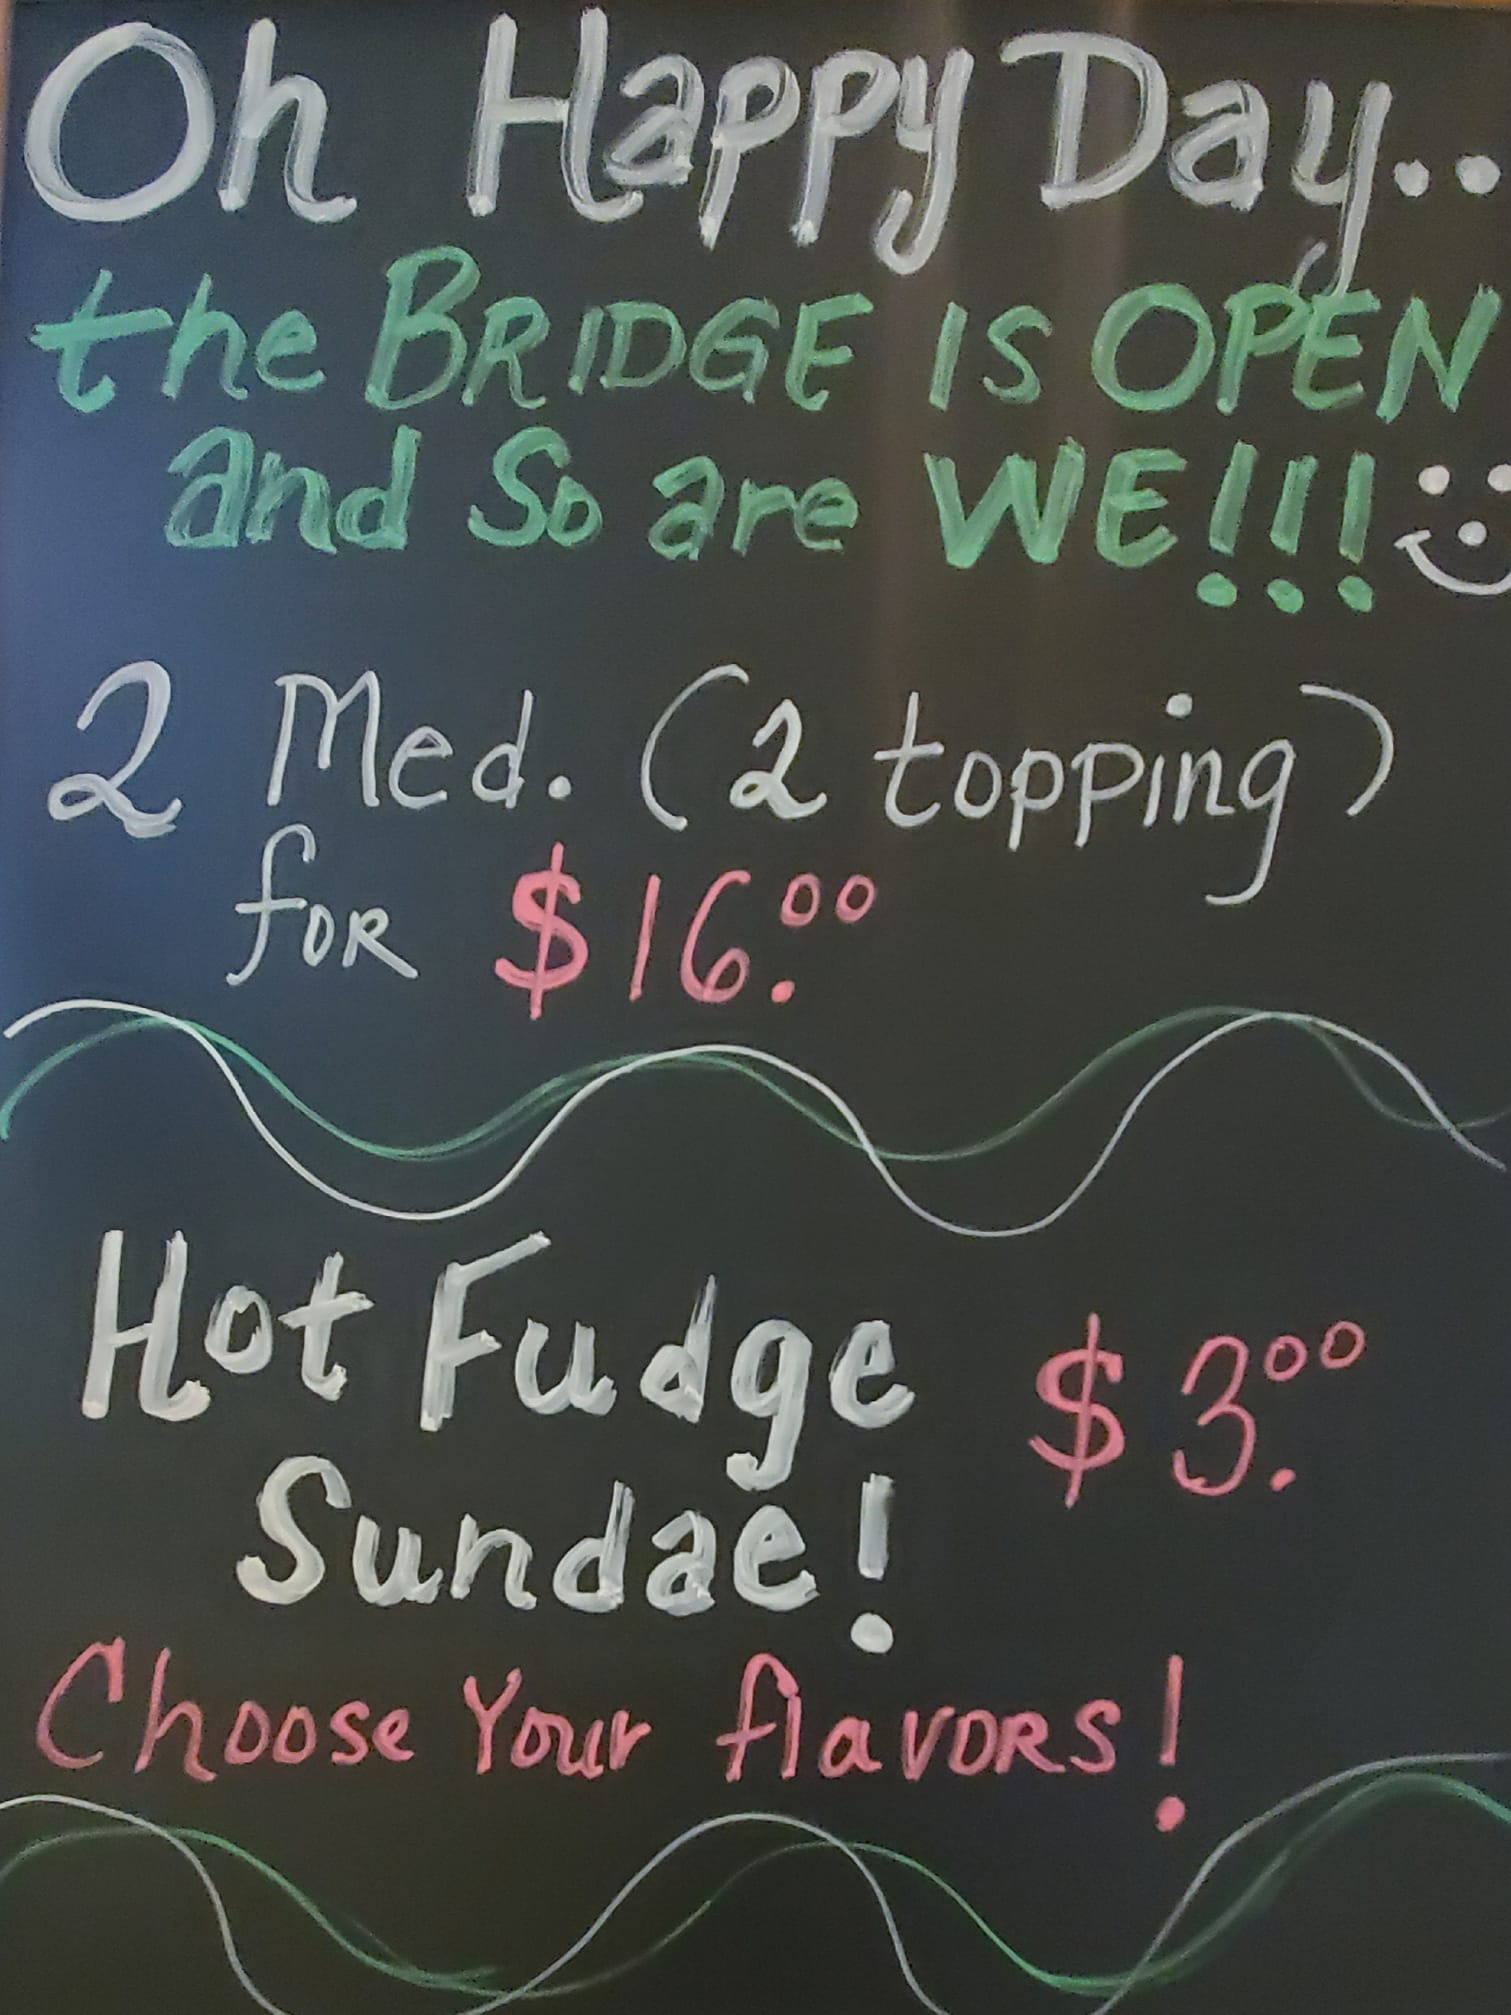 Oh Happy Day..
the BRIDGE IS OPEN
and So are WE!!!
2 Med. (2 topping)
for $16.00
Hot Fudge $3.00
Sundae!
Choose Your flavors!